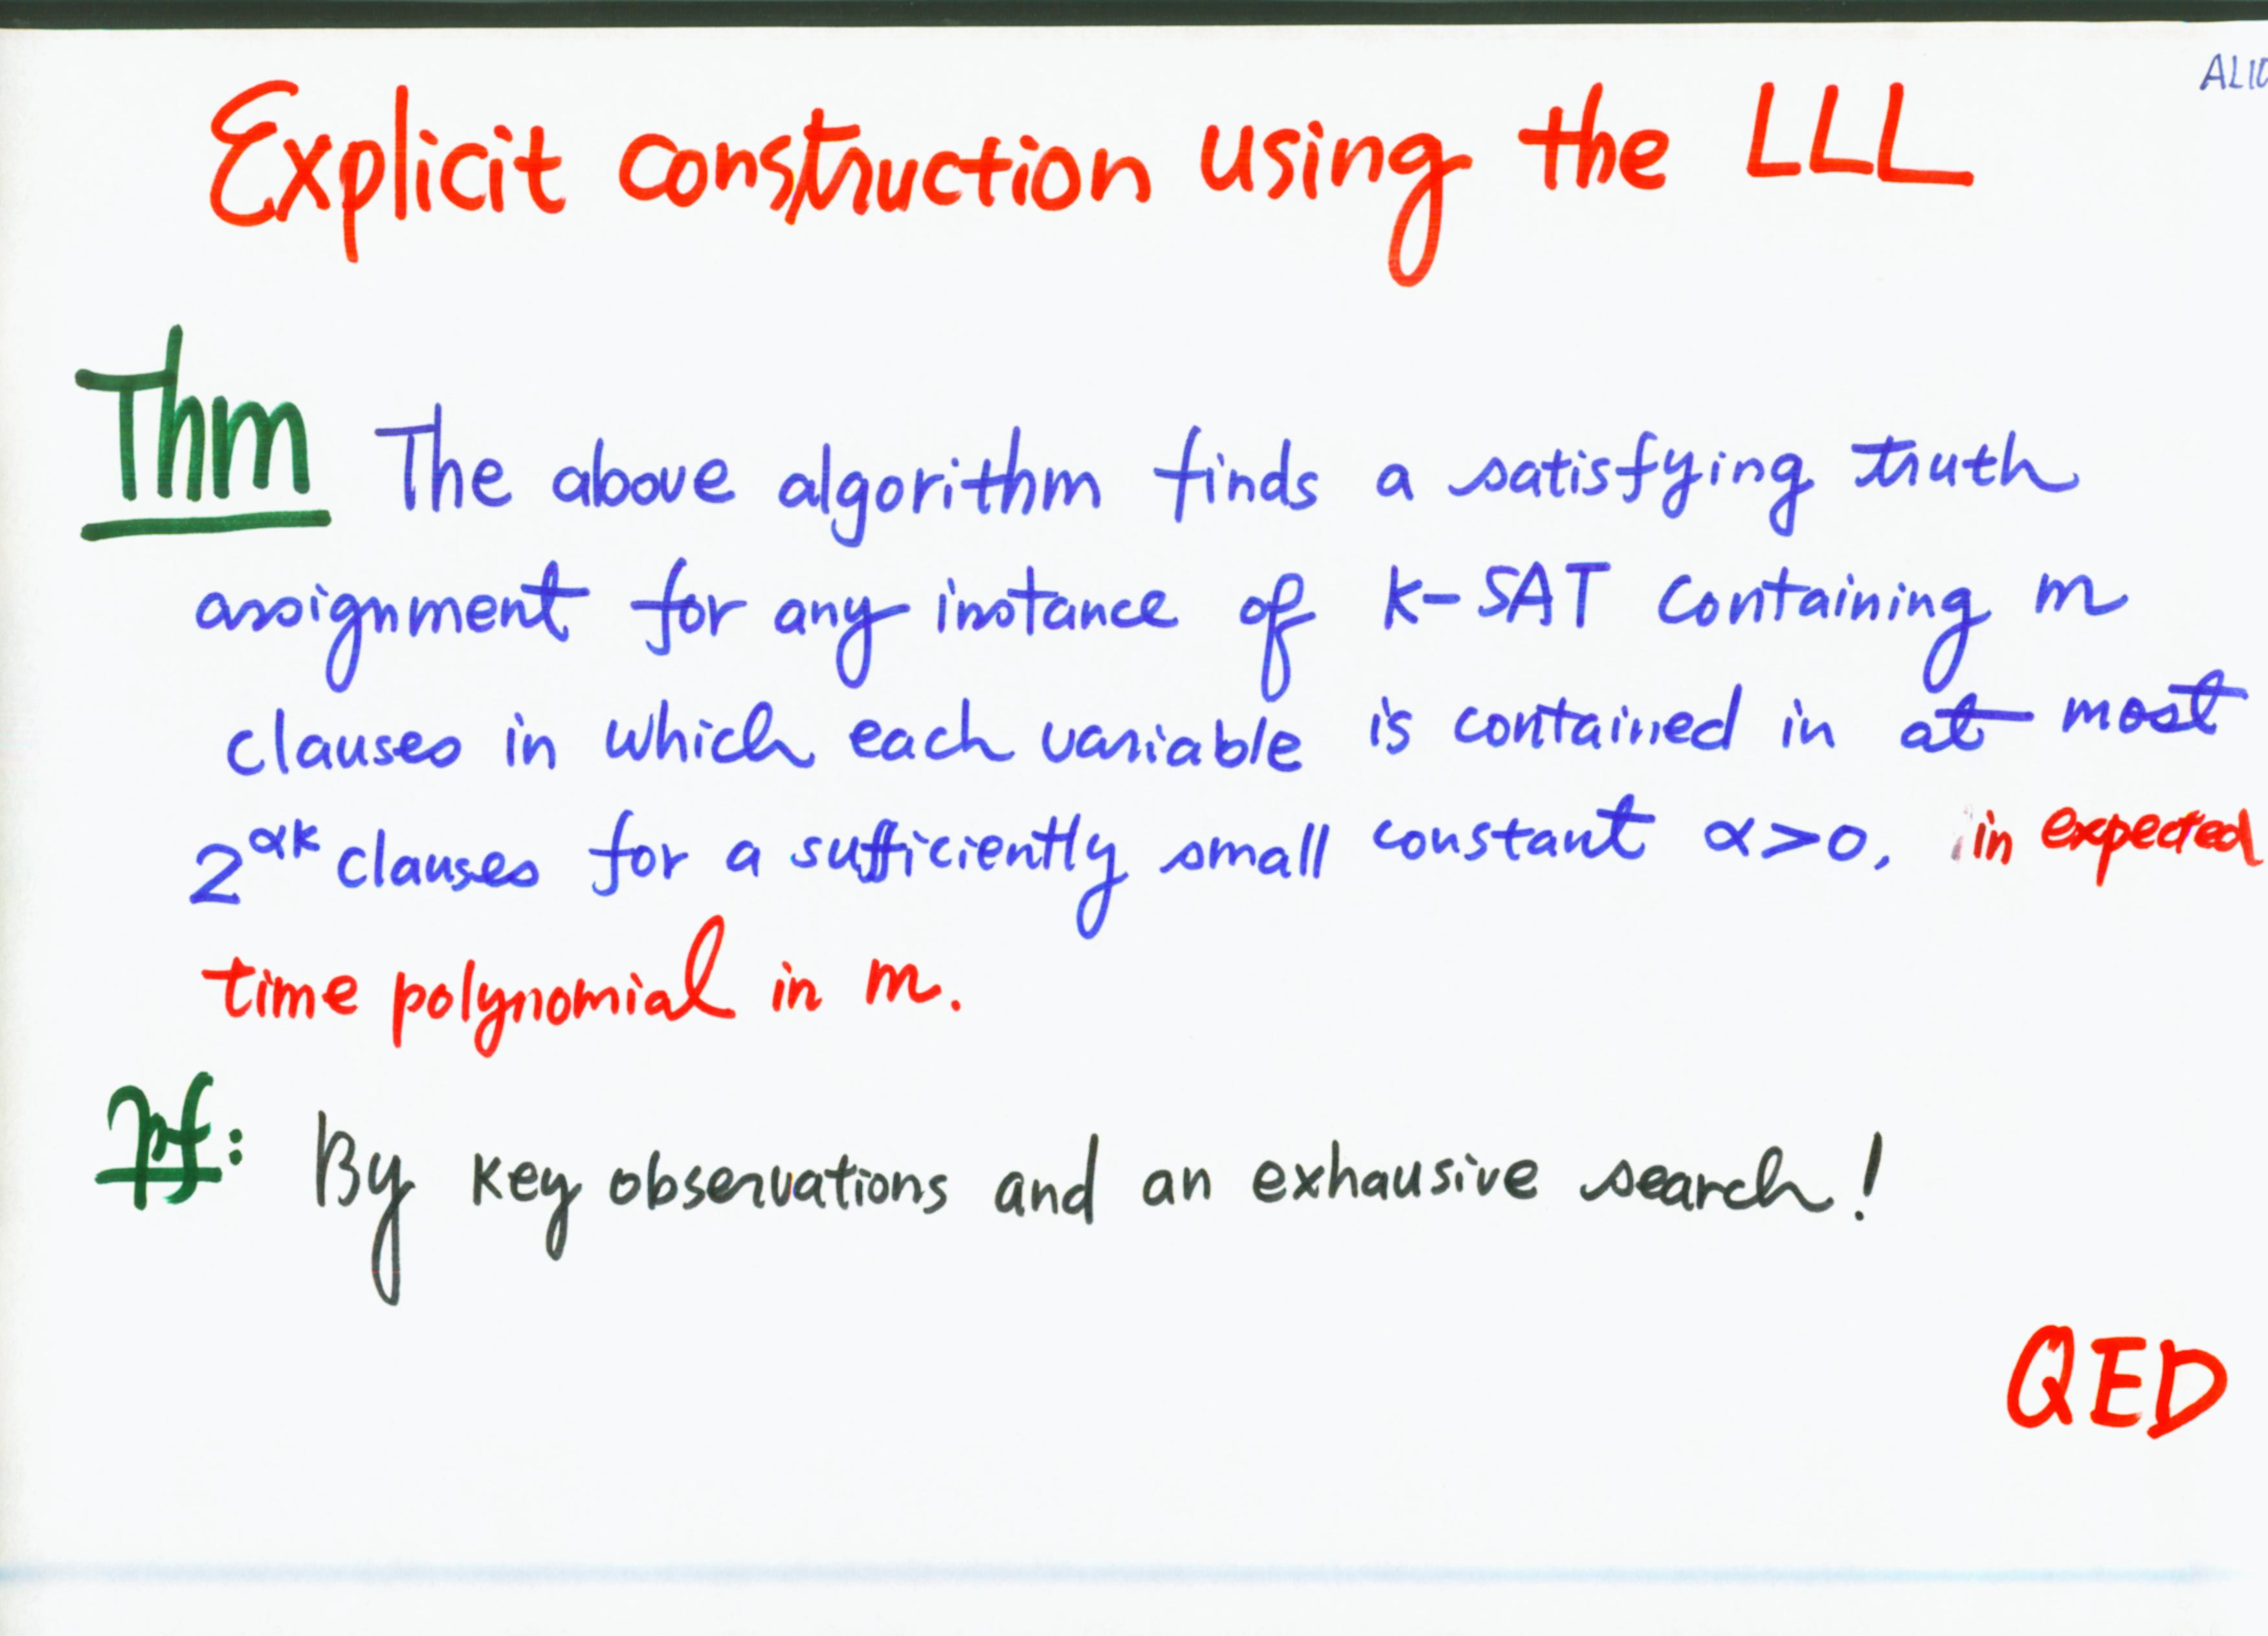 ALIC
Explicit construction using the LLL
Thm The above algorithm finds a satisfying truth
assignment for any instance of k-SAT containing m
clauses in which each variable is contained in at most
2^{αk} clauses for a sufficiently small constant α>0, in expected
time polynomial in m.
pf: By key observations and an exhausive search!
QED